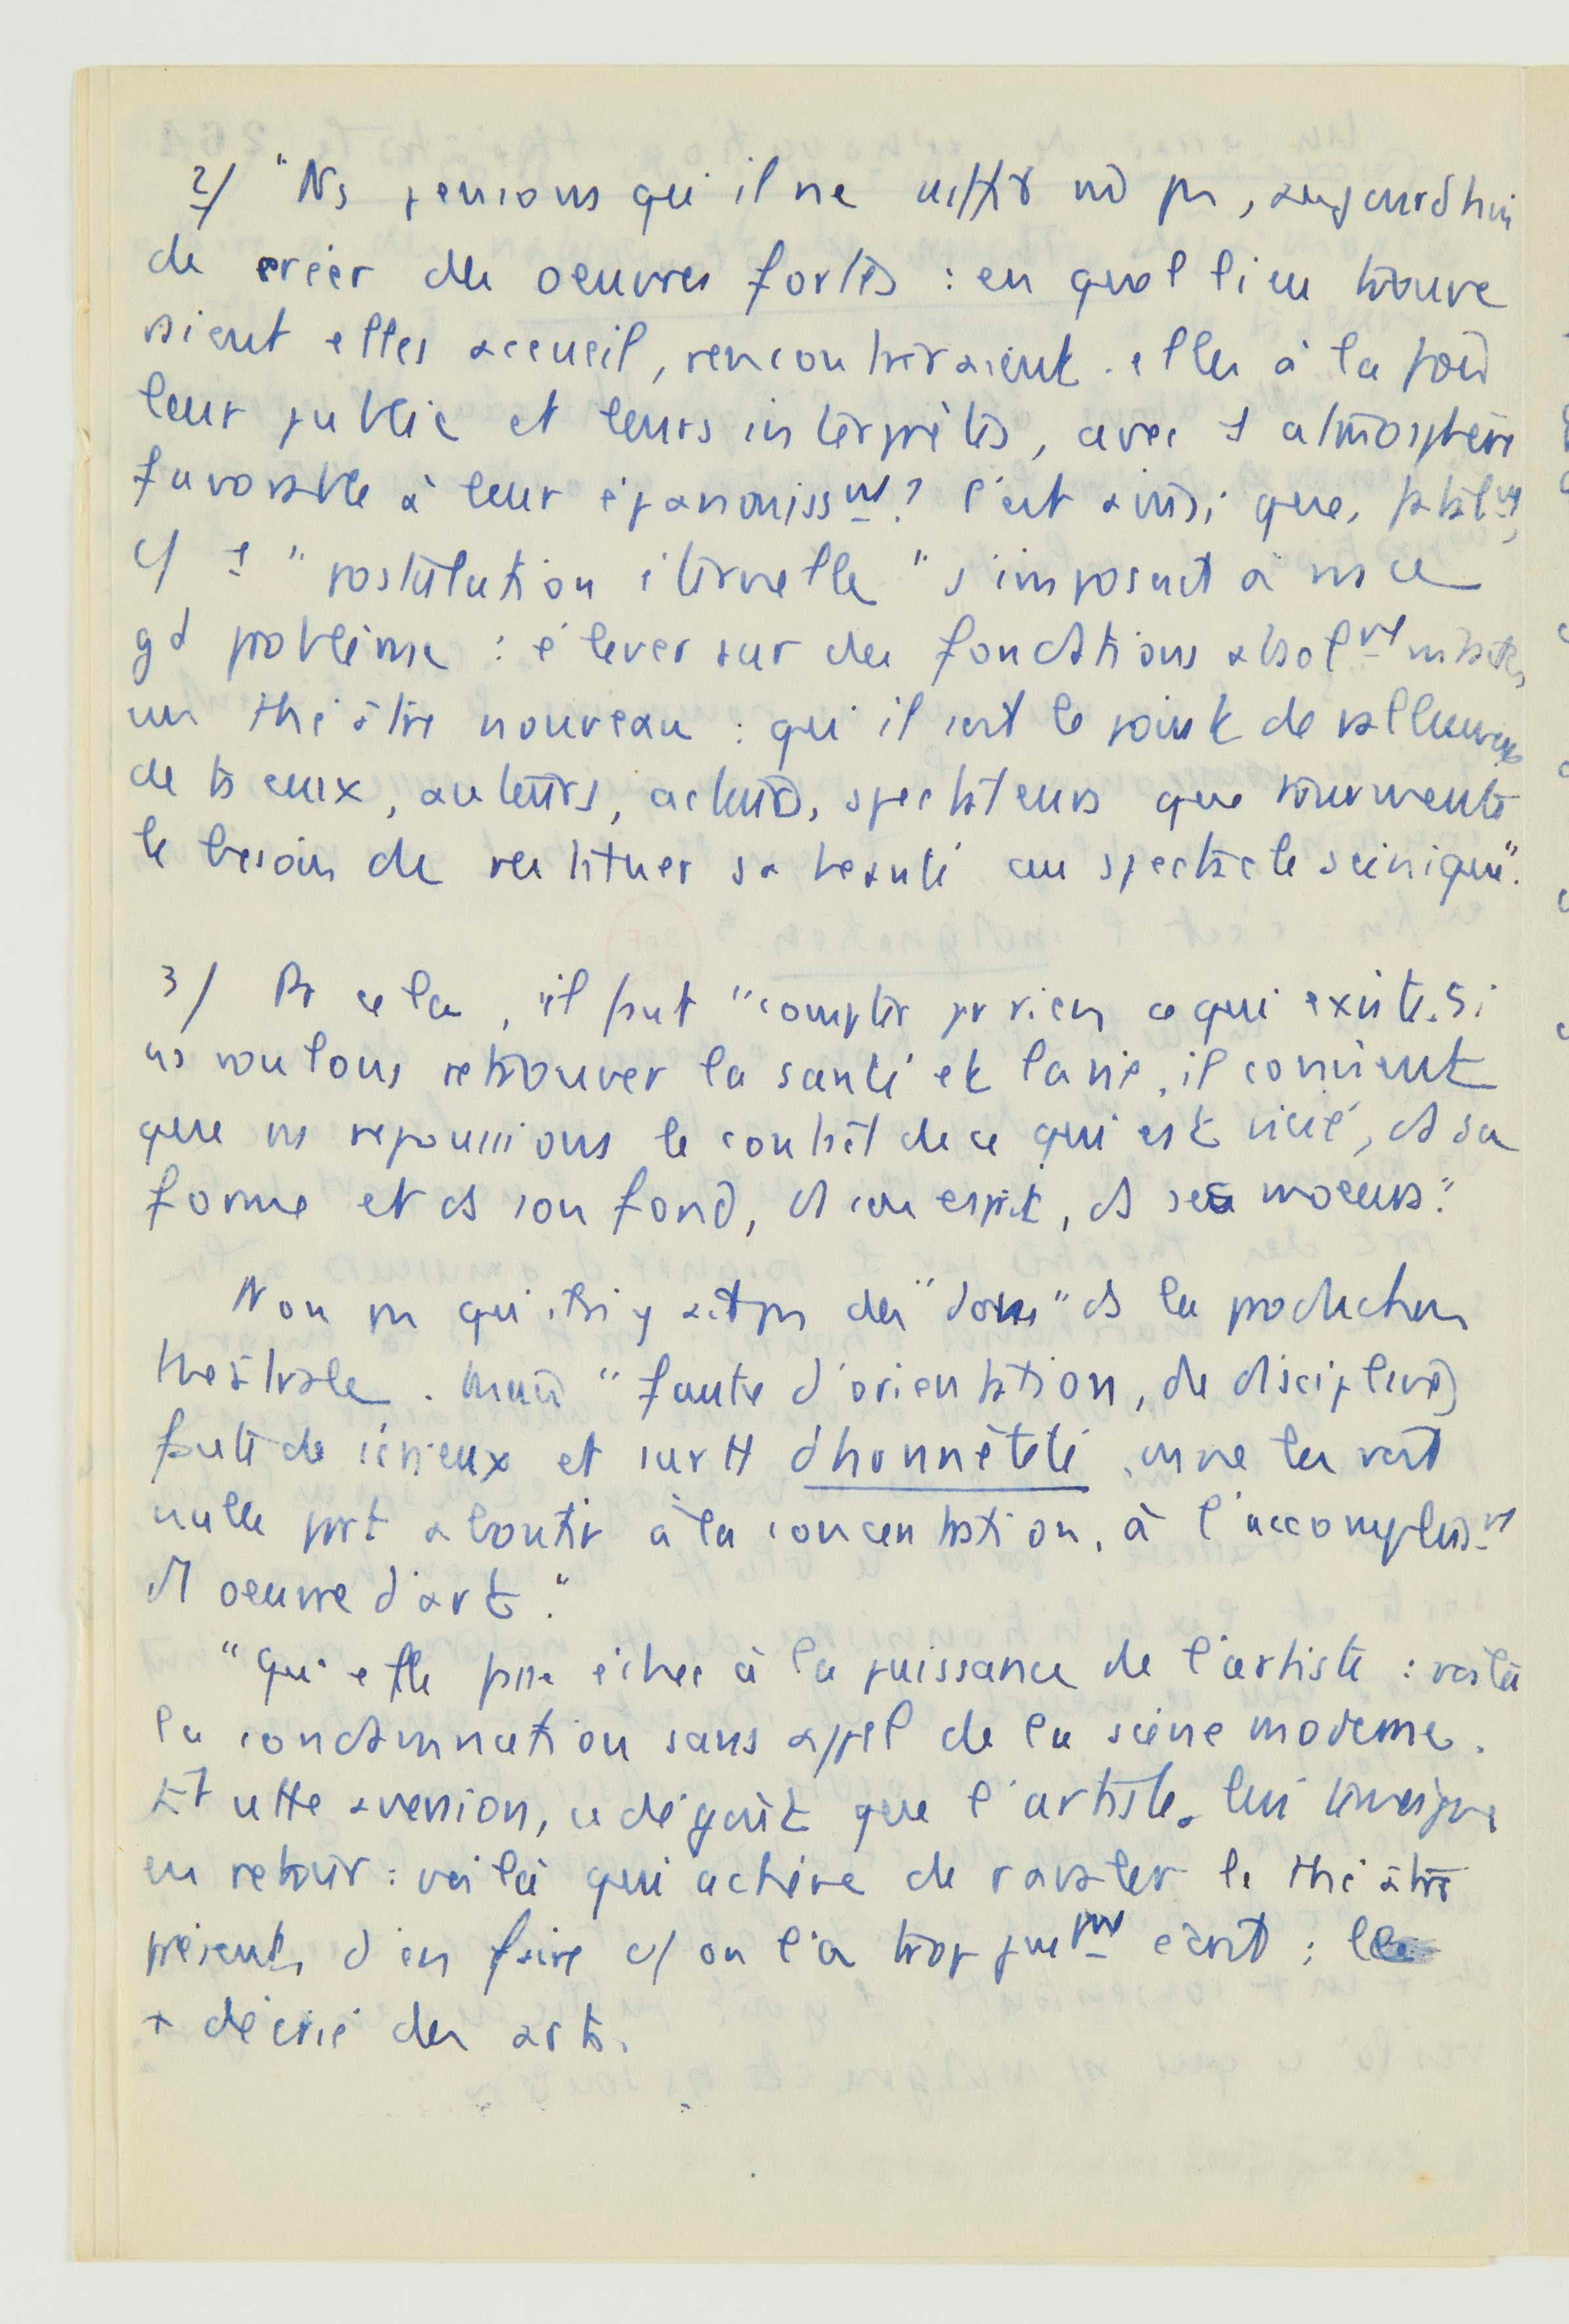 2/ "Ns pensions qu'il ne suffit pas, aujourd'hui
de créer des oeuvres fortes : en quel lieu trouve
raient elles accueil, rencontreraient-elles à la fois
leur public et leurs interprètes, avec 1 atmosphère
favorable à leur épanouissnt? C'est ainsi que, fatalnt,
c/ 1 "postulation éternelle" s'imposait à ns ce
gd problème : élever sur des fondations absolnt intactes
un théâtre nouveau : qu'il soit le point de ralliement
de ts ceux, auteurs, acteurs, spectateurs que tourmente
le besoin de restituer sa beauté au spectacle scénique".
3/ Pr cela, il faut "compter pr rien ce qui existe. Si
ns voulons retrouver la santé et la vie, il convient
que ns repoussions le contact de ce qui est vicié, ds sa
forme et ds son fond, ds son esprit, ds ses moeurs."
Non pas qu'il n'y ait pas des "dons" ds la production
théâtrale. Mais "faute d'orientation, de discipline,
faute de sérieux et surtt d'honnêteté, on ne les voit
nulle part aboutir à la concentration, à l'accomplissnt
d'1 oeuvre d'art."
"Qu'elle fasse échec à la puissance de l'artiste : voilà
la condamnation sans appel de la scène moderne.
Et cette aversion, ce dégoût que l'artiste lui témoigne
en retour : voilà qui achève de ravaler le théâtre
présent, d'en faire c/ on l'a trop justnt écrit : le
+ décrié des arts.